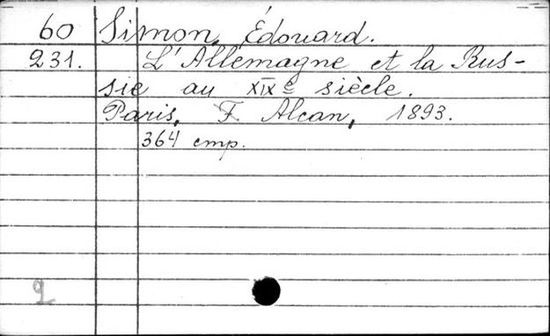 60 Simon, Édouard.
231. L'Allemagne et la Rus-
sie au XIXe siècle.
Paris, F. Alcan, 1893.
364 стр.
2